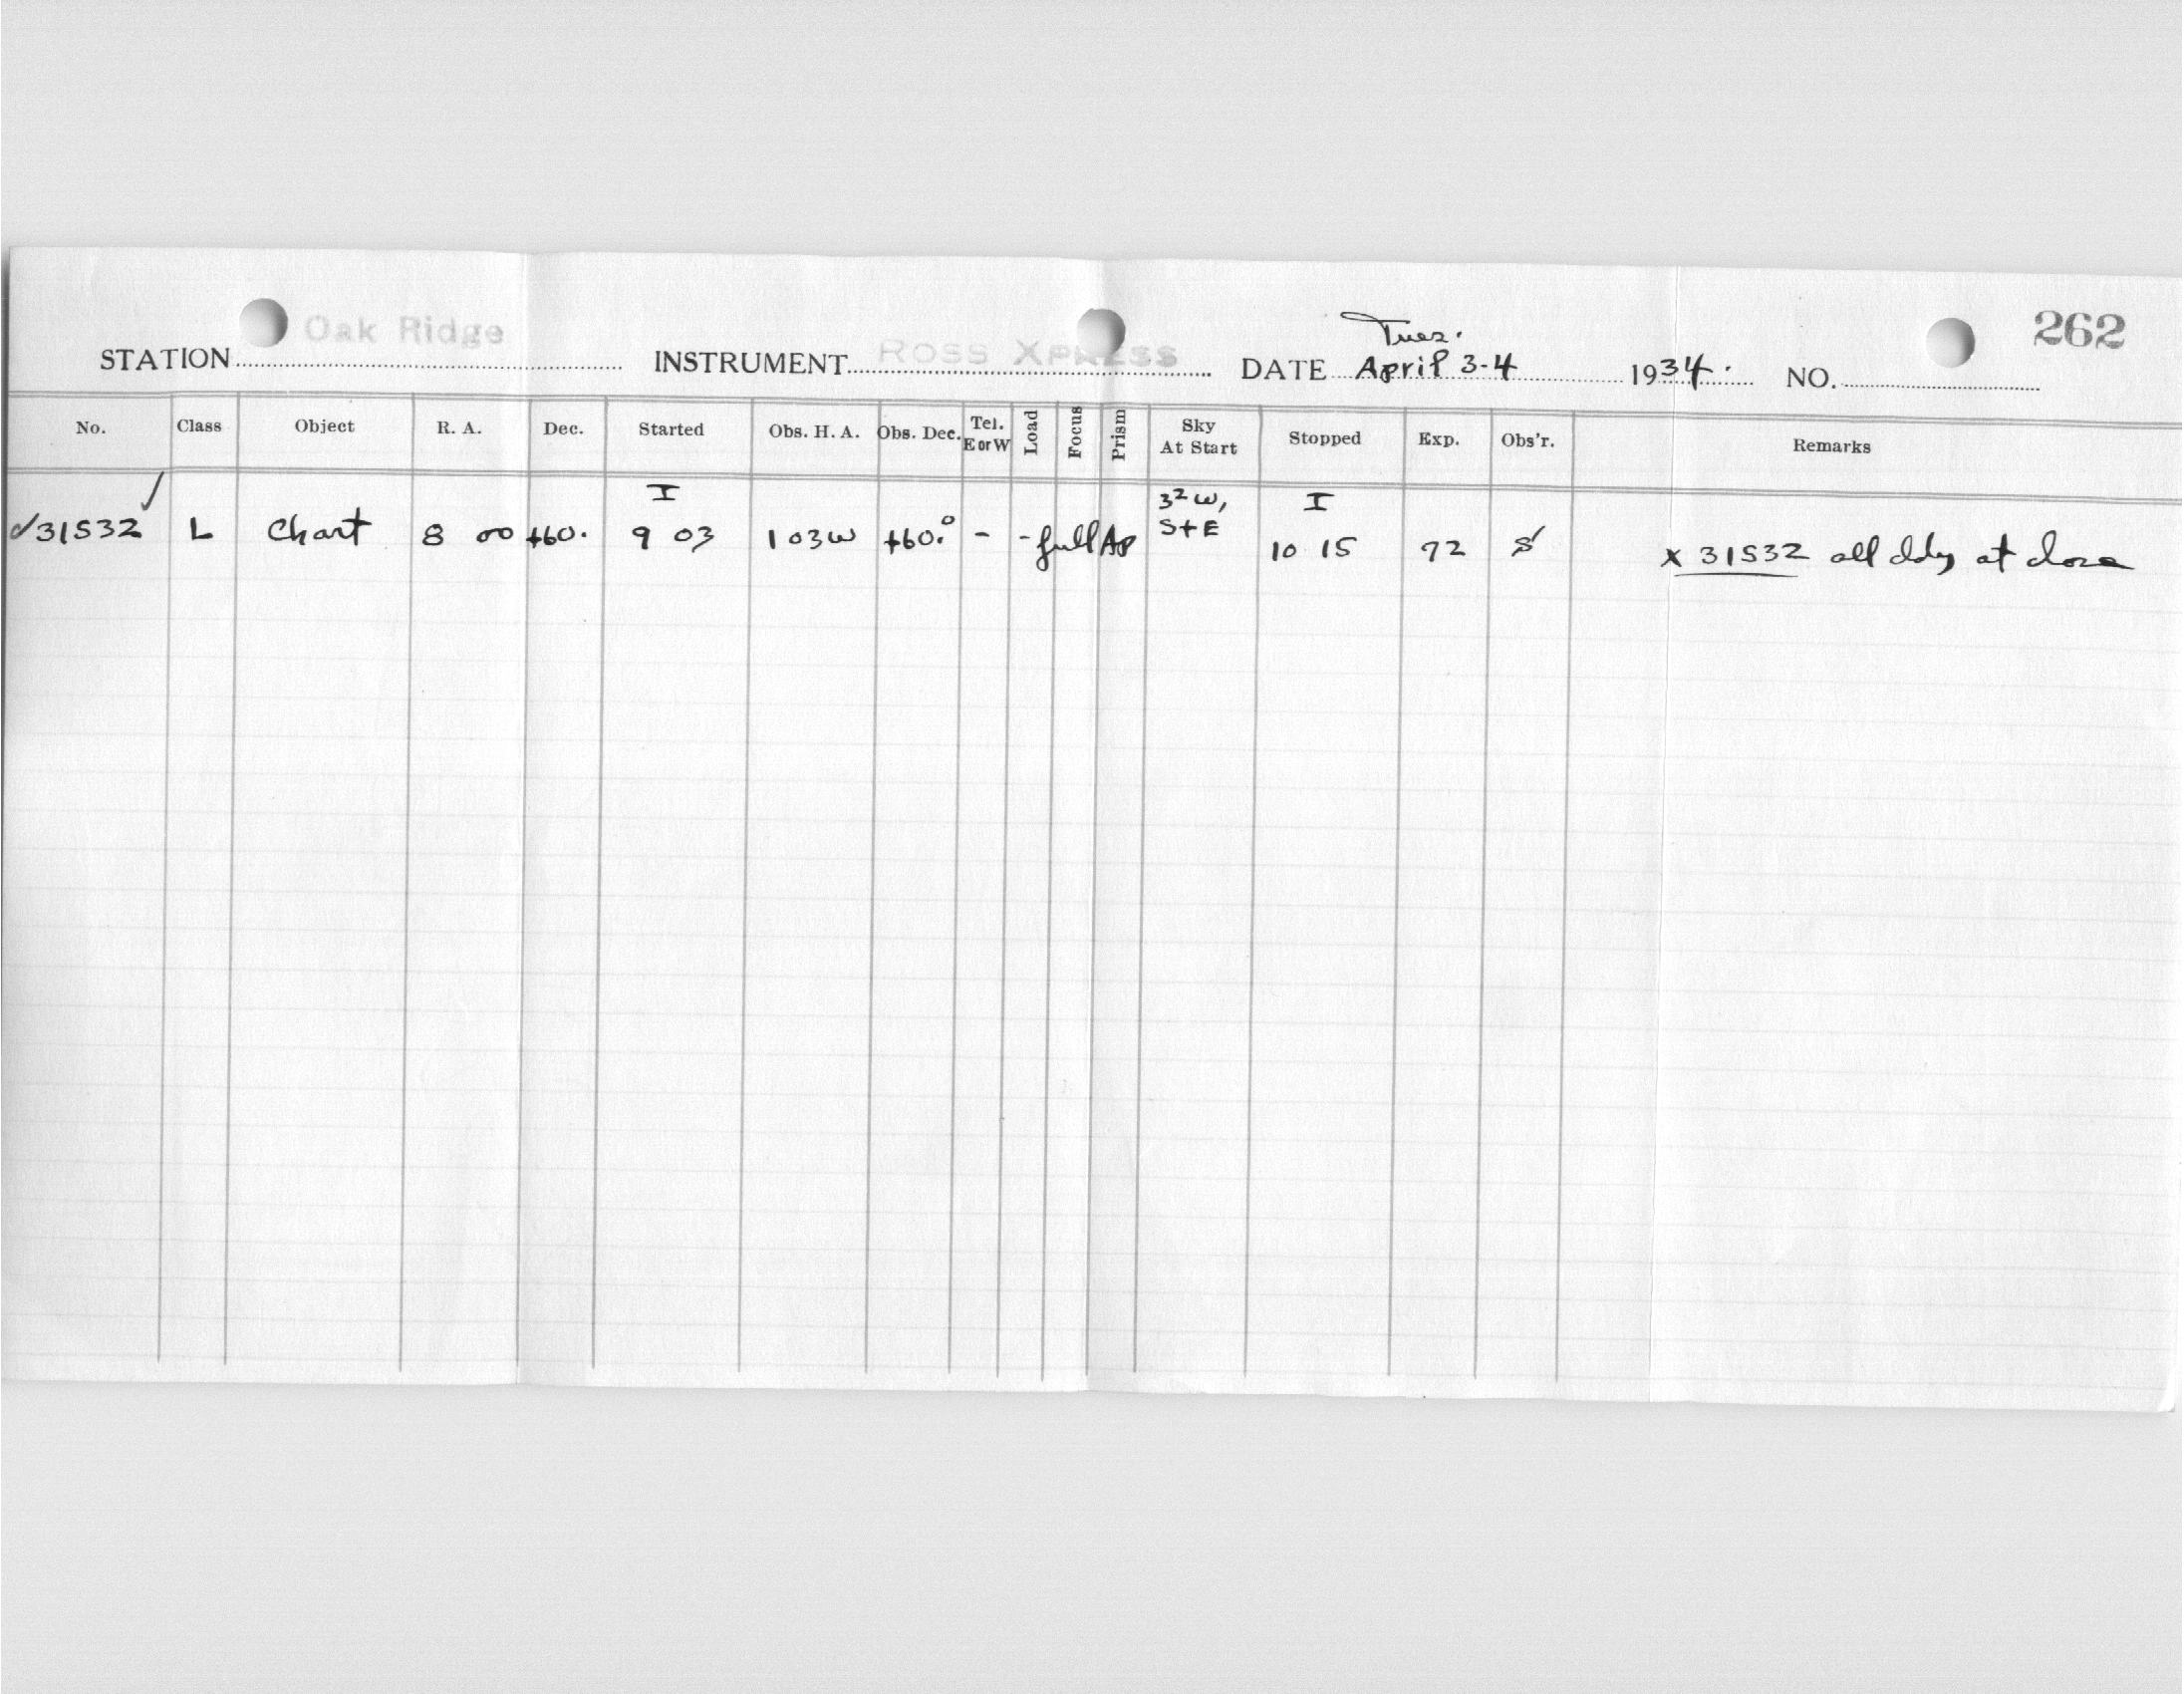 262
Oak Ridge
Tues.
STATION INSTRUMENT ROSS XPRESS DATE April 3-4 1934. NO.
No. Class Object R. A. Dec. Started Obs. H. A. Obs. Dec. Tel. E or W Load Focus Prism Sky At Start Stopped Exp. Obs'r. Remarks
I 3² W, I
✓31532 ✓ L Chart 8 00 +60. 9 03 1 03W +60.° - - full Ap S+E 10 15 72 S
x 31532 all cldy at close